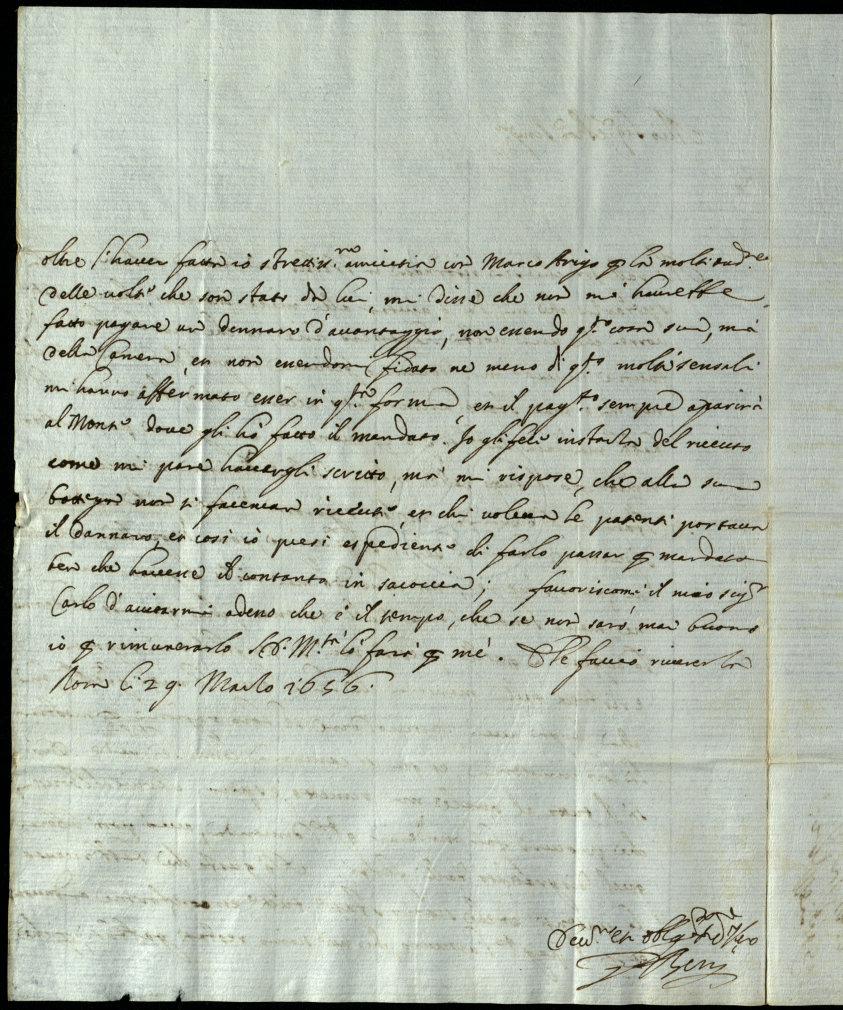 oltre l'haver fatta io strettiss.ma amicitia con Marco Arigo p la moltitud.e
delle volte che son stato da lui, mi disse che non m'haurebbe
fatto pagare un dennaro d'avantaggio, non essendo q.to cosa sua, mà
della Camera, et non essendomi fidato ne meno di q.to molti sensali
mi hanno affermato esser in q.ta forma, et il pag.to sempre aparirà
al Monte dove gli hò fatto il mandato. Io gli feci instanza del riceuto
come mi pare havergli scritto, mà mi rispose, che alla sua
bottega non si facevan riceute, et chi voleva le patenti portava
il dannaro, et così io presi espediente di farlo passar p mandato
ben che havesse il contante in saccoccia; favoriscami il mio sig.r
Carlo d'aiutarmi adesso che è il tempo, che se non sarò mai buono
io p rimunerarlo S. D. M.tà lo farà p mè. Et le faccio riverenza
Roma li 29. Marzo 1656.
Dev.mo et oblig.mo Ser.re